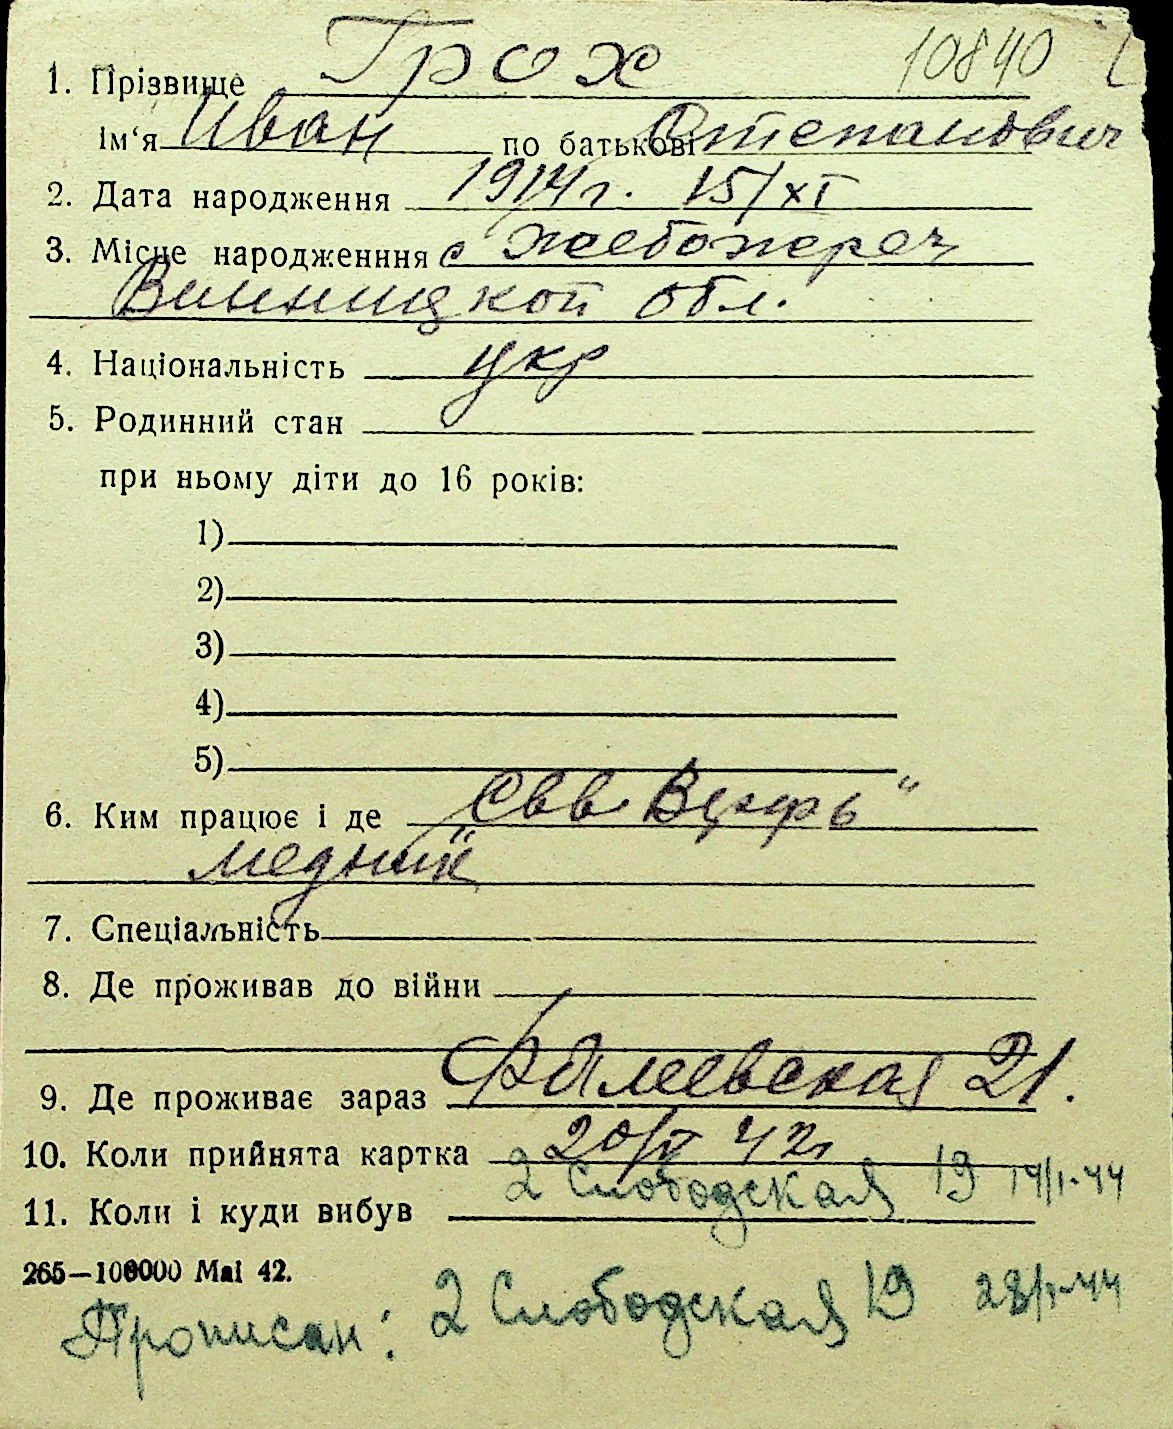 10840
1. Прізвище Грох
Ім‘я Иван по батькові Степанович
2. Дата народження 1914 г. 15/XI
3. Місце народженння с
Винницкой обл.
4. Національність укр
5. Родинний стан
при ньому діти до 16 років:
1)
2)
3)
4)
5)
6. Ким працює і де
„Свв Верфь“
медник
7. Спеціальність
8. Де проживав до війни
9. Де проживає зараз Фалеевская 21.
10. Коли прийнята картка 20/V 42г
2 Слободская 19 19/I-44
11. Коли і куди вибув
265—100000 Маі 42.
Прописан: 2 Слободская 19 28/I-44